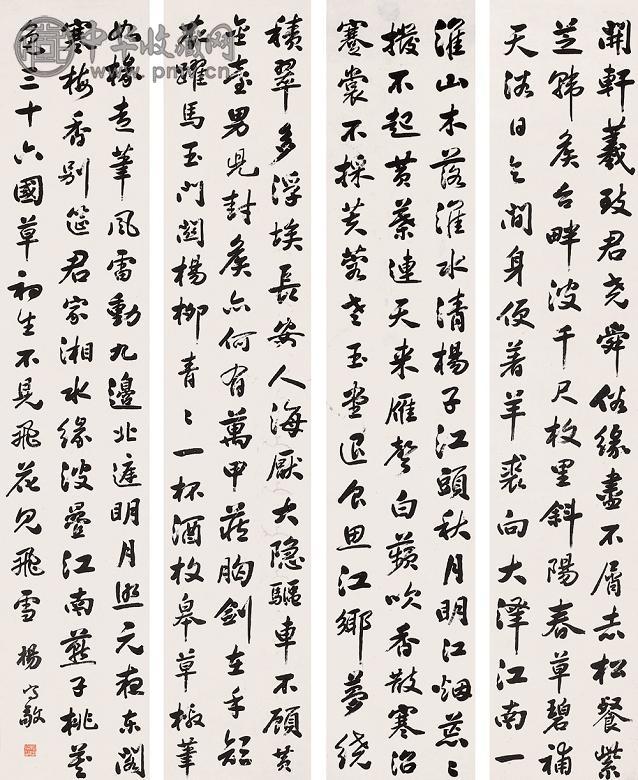 開軒羲跂君堯舜俗緣盡不屑赤松餐紫
芝歸矣台畔波千尺枚里斜陽春草碧補
天浴日乞閒身便著羊裘向大澤江南一
淮山木落淮水清楊子江頭秋月明江煙
撥不起黃連天來雁聲白蘋吹香散寒沼
蹇裳不採芙蓉老玉堂退食思江鄉夢繞
積翠多浮埃長安人海厭大隱驅車不顧黃
金臺男兒封侯亦何有萬甲藏胸劍在手短
衣躍馬玉門關楊柳青々一杯酒枚皋草檄筆
如椽走筆風雷動九邊北遮明月照元夜東閣
寒梅香別筵君家湘水綠波疊江南燕子桃花
色三十六國草初生不見飛花見飛雪 楊守敬
中华收藏网